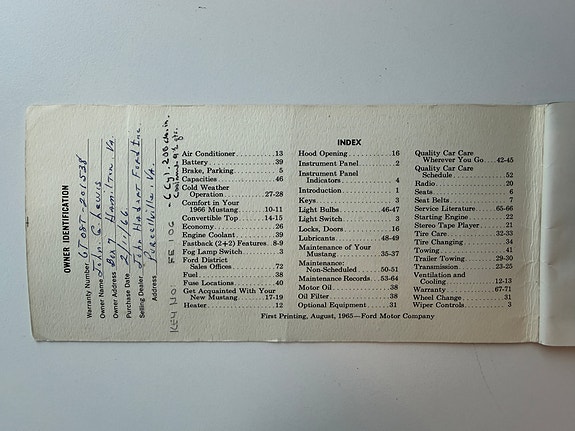 OWNER IDENTIFICATION
Warranty Number 6T08T-201538
Owner Name John C. Lewis
Owner Address Box 7 Hamilton, Va.
Purchase Date 2/11/66
Selling Dealer John Hazant Ford Inc
Address Purcellville, Va.
KEY NO FE 106 - 6 Cyl. 200 cu. in.
INDEX
Air Conditioner 13
Battery 39
Brake, Parking 5
Capacities 46
Cold Weather
Operation 27-28
Comfort in Your
1966 Mustang 10-11
Convertible Top 14-15
Economy 26
Engine Coolant 39
Fastback (2+2) Features 8-9
Fog Lamp Switch 3
Ford District
Sales Offices 72
Fuel 38
Fuse Locations 40
Get Acquainted With Your
New Mustang 17-19
Heater 12
Hood Opening 16
Instrument Panel 2
Instrument Panel
Indicators 4
Introduction 1
Keys 3
Light Bulbs 46-47
Light Switch 3
Locks, Doors 16
Lubricants 48-49
Maintenance of Your
Mustang 35-37
Maintenance:
Non-Scheduled 50-51
Maintenance Records 53-64
Motor Oil 38
Oil Filter 38
Optional Equipment 31
Quality Car Care
Wherever You Go 42-45
Quality Car Care
Schedule 52
Radio 20
Seats 6
Seat Belts 7
Service Literature 65-66
Starting Engine 22
Stereo Tape Player 21
Tire Care 32-33
Tire Changing 34
Towing 41
Trailer Towing 29-30
Transmission 23-25
Ventilation and
Cooling 12-13
Warranty 67-71
Wheel Change 31
Wiper Controls 3
First Printing, August, 1965—Ford Motor Company